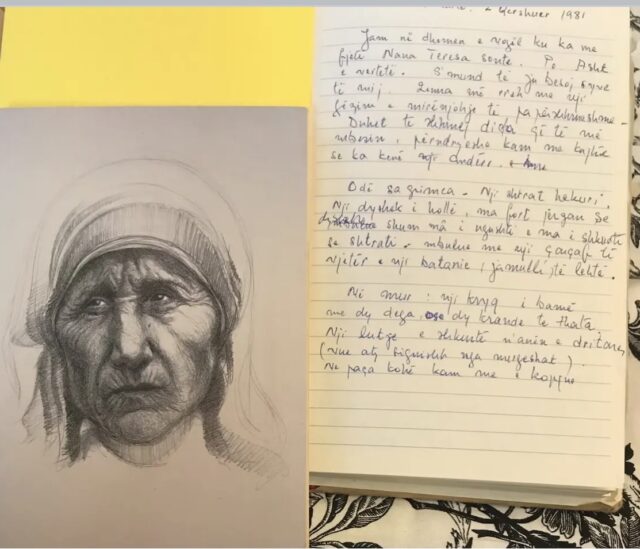 2 Gershuer 1981
Jam në dhomen e vogël ku ka me
fjetë Nana Tereza sonte. Po. Asht
e vertetë. S'mund të ju besoj syve
të mij. Zema më rreh me nji
gëzim e mirënjohje të papërshkrueshme -
Duhet të shkruej diçka që të më
ndryshe kam me kujtue
se ka kenë nji andërr.
Odë sa grimca. Nji shtrat hekuri,
Nji dyshek i hollë, ma fort jorgan se
dyshek shum mâ i ngushtë e ma i shkurtë
se shtrati - mbulue me nji çarçaf të
vjetër e nji batanie, jamulli, të lehtë.
Në mur: nji kryq i bamë
me dy dega, ose dy krande te thata.
Nji lutje e shkurtë n'anën e dritares
(vue aty sigurisht nga murgeshat).
Ne paça kohë kam me e kopjue